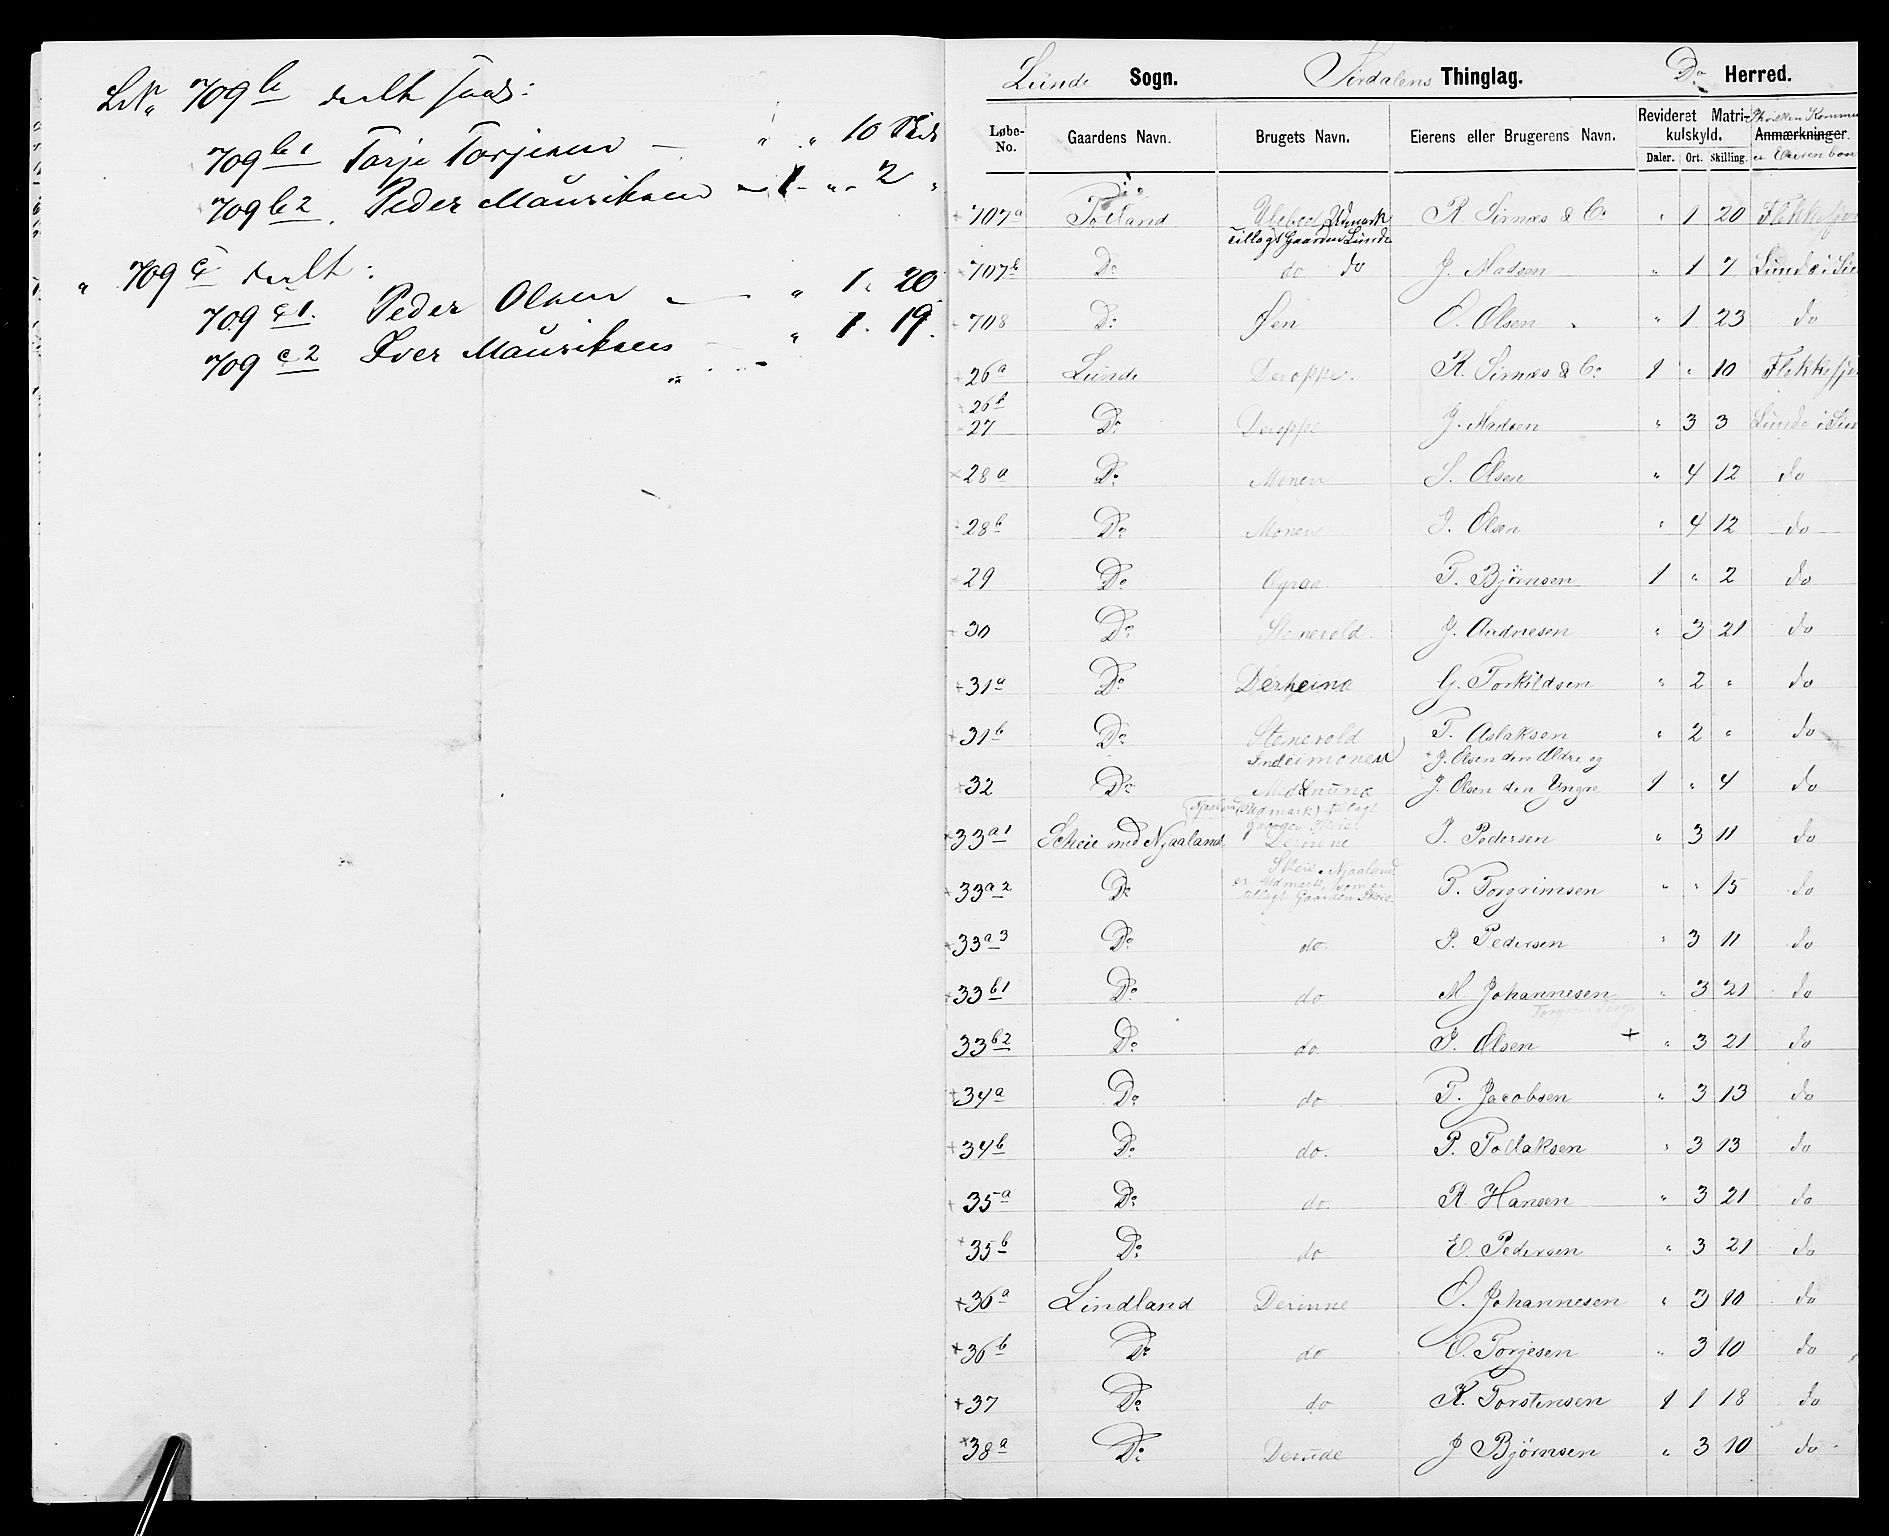 LNr. 709 b delt saas:
709 b1 Torje Torjesen — " " 10 Skil
709 b2. Peder Mauriksen — 1 - " - 2 "
" 709 c delt:
709 c1. Peder Olsen — " 1. 20
709 c2 Iver Mauriksen — " 1. 19.
Lunde Sogn. Sirdalens Thinglag. Do Herred.
Løbe-No. Gaardens Navn. Brugets Navn. Eierens eller Brugerens Navn. Revideret Matrikulskyld. Anmærkninger.
Daler. Ort. Skilling.
707a Tolland Udmark R. Sirnes & Co " 1 20
tillagt Gaarden Lunde
707b Do do do J. Madsen " 1 7 Lunde i
708 Do Øen O. Olsen " 1 23 do
26a Lunde Deroppe. R. Sirnes & Co 1 " 10
26b
27 Do Deroppe J. Madsen " 3 3 Lunde i
28a Do Monen S. Olsen " 4 12 do
28b Do Monen J. Olsen " 4 12 do
29 Do T. Bjørnsen 1 " 2 do
30 Do Stenevold. J. Aadnesen " 3 21 do
31a Do Derheima G. Torkildsen " 2 " do
31b Do Stenevold T. Aslaksen " 2 " do
J. Olsen den Ældre og
32 Do J. Olsen den Yngre 1 " 4 do
33a1 Scheie med Njaaland Derinne J. Pedersen " 3 11 do
Skeie. Njaaland
er Udmark, som er
33a2 Do tillagt Gaarden Skeie. T. Torgrimsen " " 15 do
33a3 Do do. P. Pedersen " 3 11 do
33b1 Do do M Johannesen " 3 21 do
33b2 Do do. P. Olsen + " 3 21 do
34a Do do T. Jacobsen " 3 13 do
34b Do do. P. Tollaksen " 3 13 do
35a Do do. R. Hansen " 3 21 do
35b Do do E. Pedersen " 3 21 do
36a Lindland Derinne O. Johannesen " 3 10 do
36b Do do O. Torjesen " 3 10 do
37 Do do K. Torstensen 1 1 18 do
38a Do Derude J Bjørnsen " 3 10 do